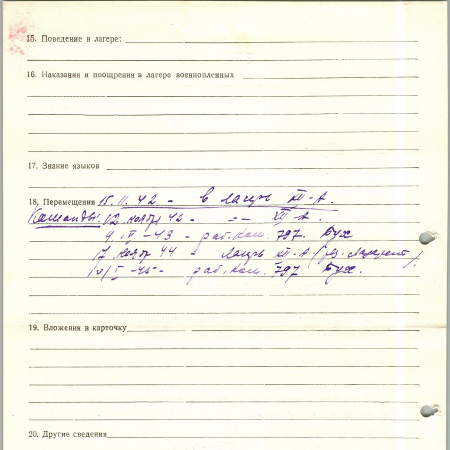 15. Поведение в лагере:
16. Наказания и поощрения в лагере военнопленных
17. Знание языков
18. Перемещения 15.11.42 - в лагерь XII-А
Команды: 12 ноября 42 - -„- XII А.
9 IV-43 - раб. ком. 797. Бух
17 ноябр 44 - лагерь XII-А / лазарет /.
10/I-45- раб. ком. 797 Бух.
19. Вложения в карточку
20. Другие сведения